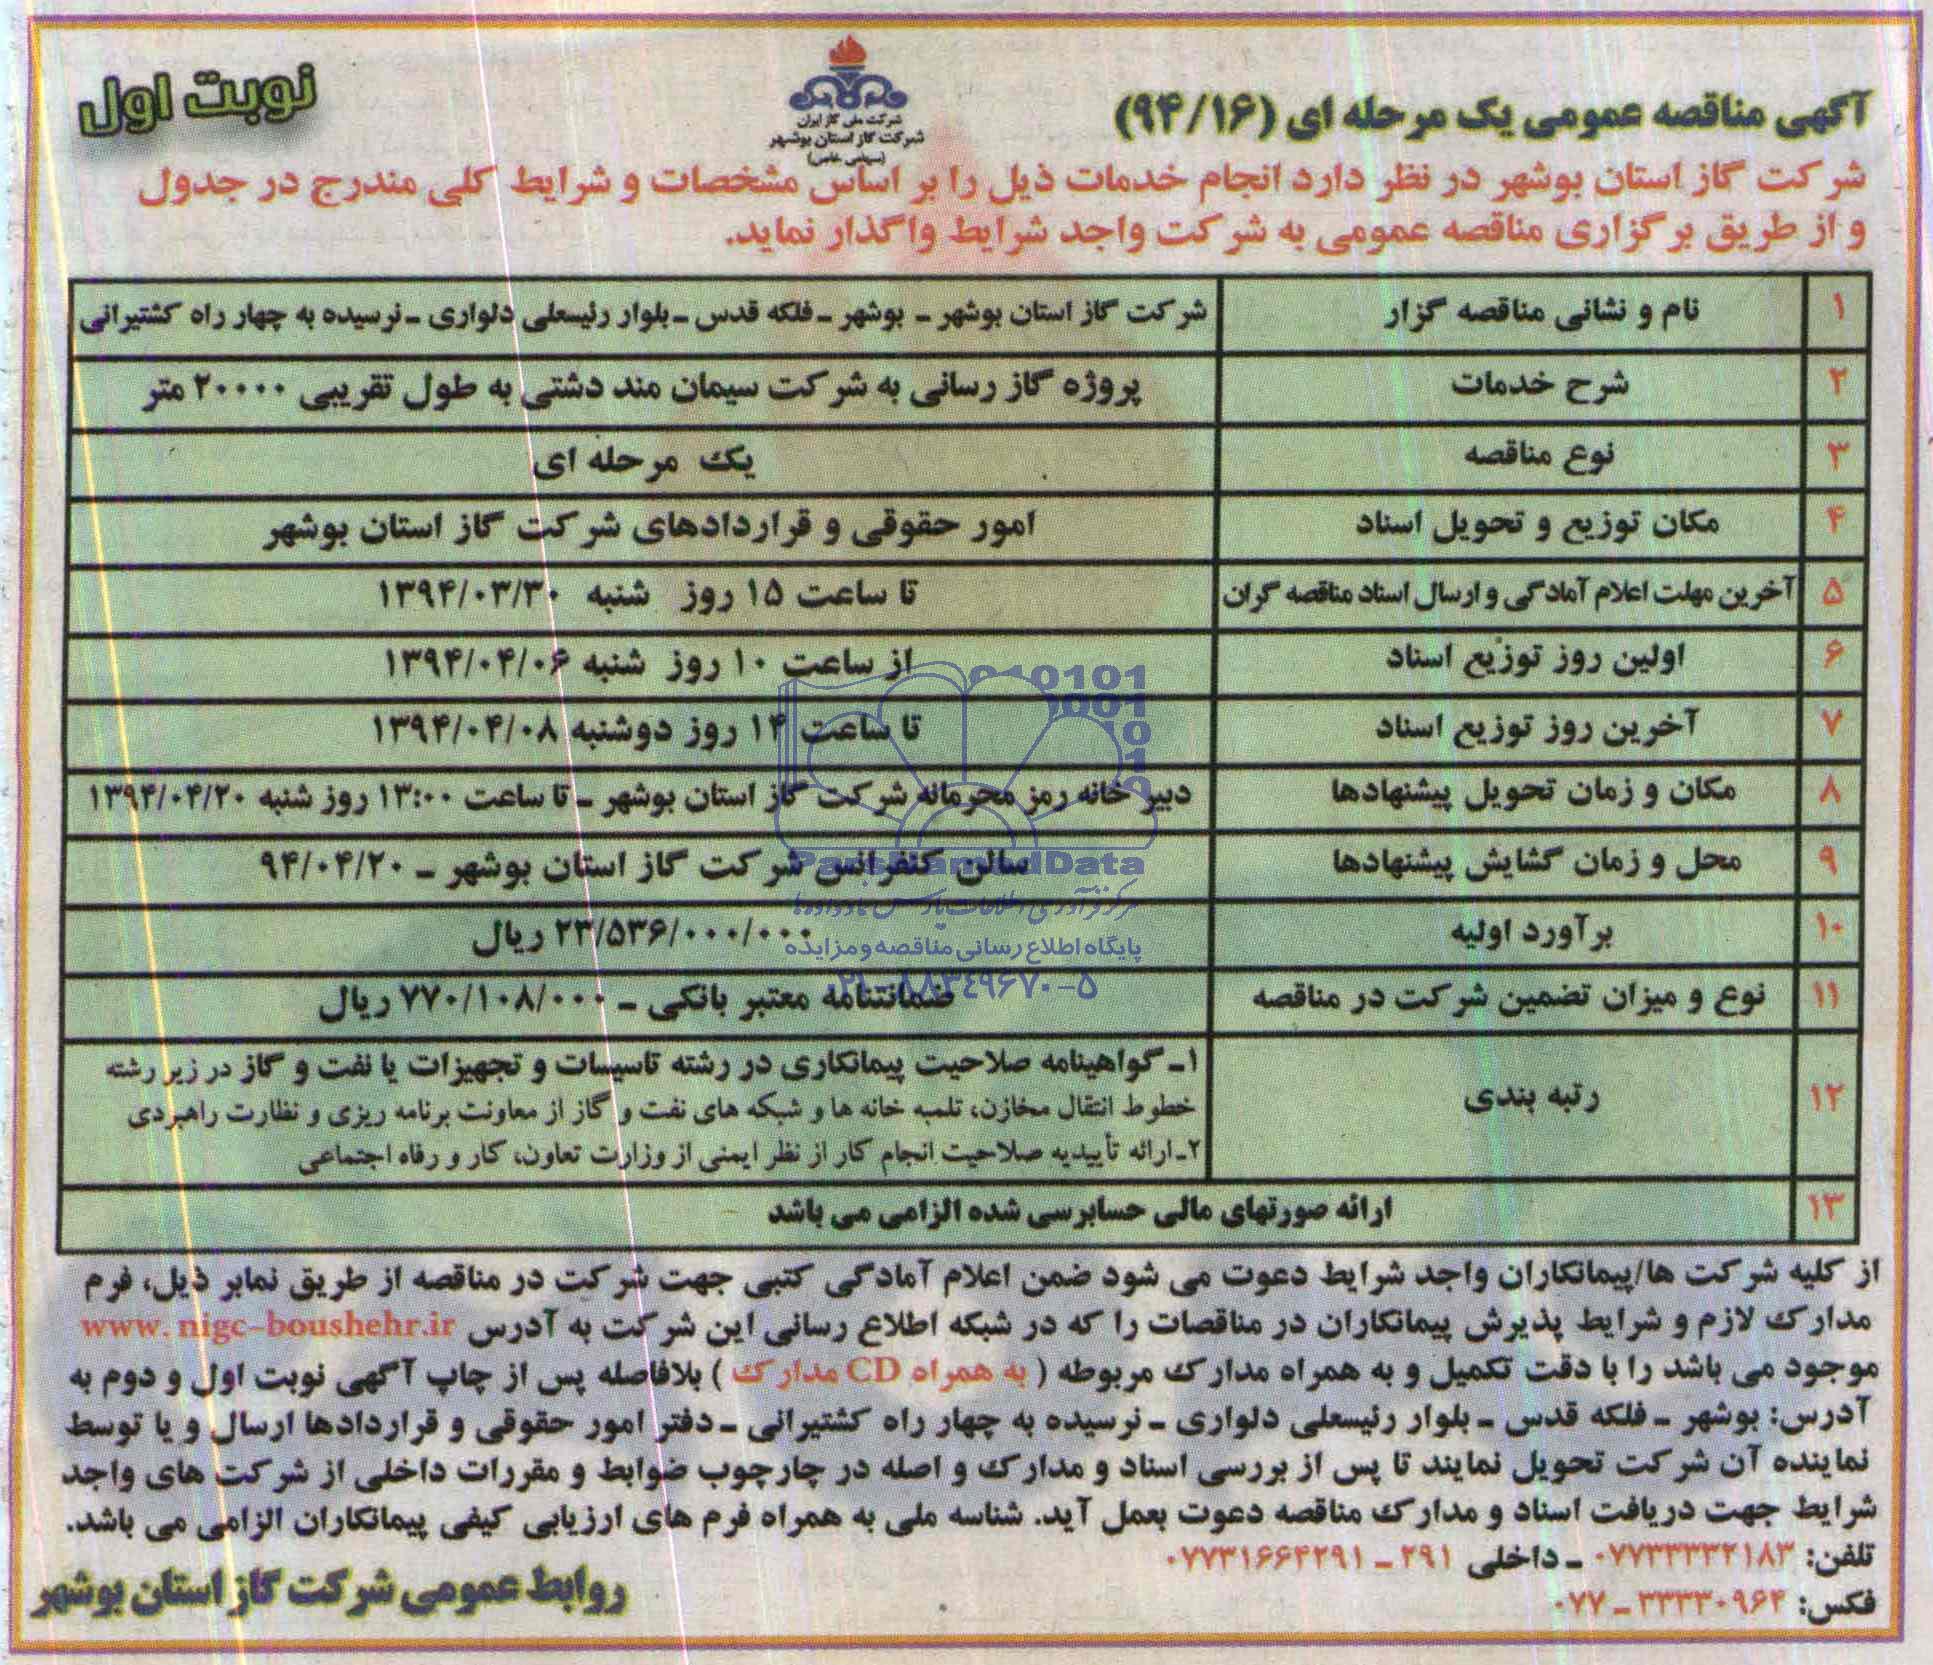 نوبت اول
شرکت ملی گاز ایران
شرکت گاز استان بوشهر
(سهامی خاص)
آگهی مناقصه عمومی یک مرحله ای (۹۴/۱۶)
شرکت گاز استان بوشهر در نظر دارد انجام خدمات ذیل را بر اساس مشخصات و شرایط کلی مندرج در جدول
و از طریق برگزاری مناقصه عمومی به شرکت واجد شرایط واگذار نماید.
۱ نام و نشانی مناقصه گزار شرکت گاز استان بوشهر ـ بوشهر ـ فلکه قدس ـ بلوار رئیسعلی دلواری ـ نرسیده به چهار راه کشتیرانی
۲ شرح خدمات پروژه گاز رسانی به شرکت سیمان مند دشتی به طول تقریبی ۲۰۰۰۰ متر
۳ نوع مناقصه یک مرحله ای
۴ مکان توزیع و تحویل اسناد امور حقوقی و قراردادهای شرکت گاز استان بوشهر
۵ آخرین مهلت اعلام آمادگی و ارسال اسناد مناقصه گران تا ساعت ۱۵ روز شنبه ۱۳۹۴/۰۳/۳۰
۶ اولین روز توزیع اسناد از ساعت ۱۰ روز شنبه ۱۳۹۴/۰۴/۰۶
۷ آخرین روز توزیع اسناد تا ساعت ۱۴ روز دوشنبه ۱۳۹۴/۰۴/۰۸
۸ مکان و زمان تحویل پیشنهادها دبیر خانه رمز محرمانه شرکت گاز استان بوشهر ـ تا ساعت ۱۳:۰۰ روز شنبه ۱۳۹۴/۰۴/۲۰
۹ محل و زمان گشایش پیشنهادها سالن کنفرانس شرکت گاز استان بوشهر ـ ۹۴/۰۴/۲۰
۱۰ برآورد اولیه ۲۳/۵۳۶/۰۰۰/۰۰۰ ریال
۱۱ نوع و میزان تضمین شرکت در مناقصه ضمانتنامه معتبر بانکی ـ ۷۷۰/۱۰۸/۰۰۰ ریال
۱۲ رتبه بندی ۱ـ گواهینامه صلاحیت پیمانکاری در رشته تاسیسات و تجهیزات یا نفت و گاز در زیر رشته
خطوط انتقال مخازن، تلمبه خانه ها و شبکه های نفت و گاز از معاونت برنامه ریزی و نظارت راهبردی
۲ـ ارائه تأییدیه صلاحیت انجام کار از نظر ایمنی از وزارت تعاون، کار و رفاه اجتماعی
۱۳ ارائه صورتهای مالی حسابرسی شده الزامی می باشد
از کلیه شرکت ها/پیمانکاران واجد شرایط دعوت می شود ضمن اعلام آمادگی کتبی جهت شرکت در مناقصه از طریق نمابر ذیل، فرم
مدارک لازم و شرایط پذیرش پیمانکاران در مناقصات را که در شبکه اطلاع رسانی این شرکت به آدرس www. nigc-boushehr.ir
موجود می باشد را با دقت تکمیل و به همراه مدارک مربوطه ( به همراه CD مدارک ) بلافاصله پس از چاپ آگهی نوبت اول و دوم به
آدرس: بوشهر ـ فلکه قدس ـ بلوار رئیسعلی دلواری ـ نرسیده به چهار راه کشتیرانی ـ دفتر امور حقوقی و قراردادها ارسال و یا توسط
نماینده آن شرکت تحویل نمایند تا پس از بررسی اسناد و مدارک و اصله در چارچوب ضوابط و مقررات داخلی از شرکت های واجد
شرایط جهت دریافت اسناد و مدارک مناقصه دعوت بعمل آید. شناسه ملی به همراه فرم های ارزیابی کیفی پیمانکاران الزامی می باشد.
تلفن: ۰۷۷۳۳۳۳۲۱۸۳ ـ داخلی ۲۹۱ ـ ۰۷۷۳۱۶۶۴۲۹۱
فکس: ۳۳۳۳۰۹۶۴ ـ ۰۷۷
روابط عمومی شرکت گاز استان بوشهر
پایگاه اطلاع رسانی مناقصه و مزایده
۰۲۱-۸۸۳۴۹۶۷۰-۵